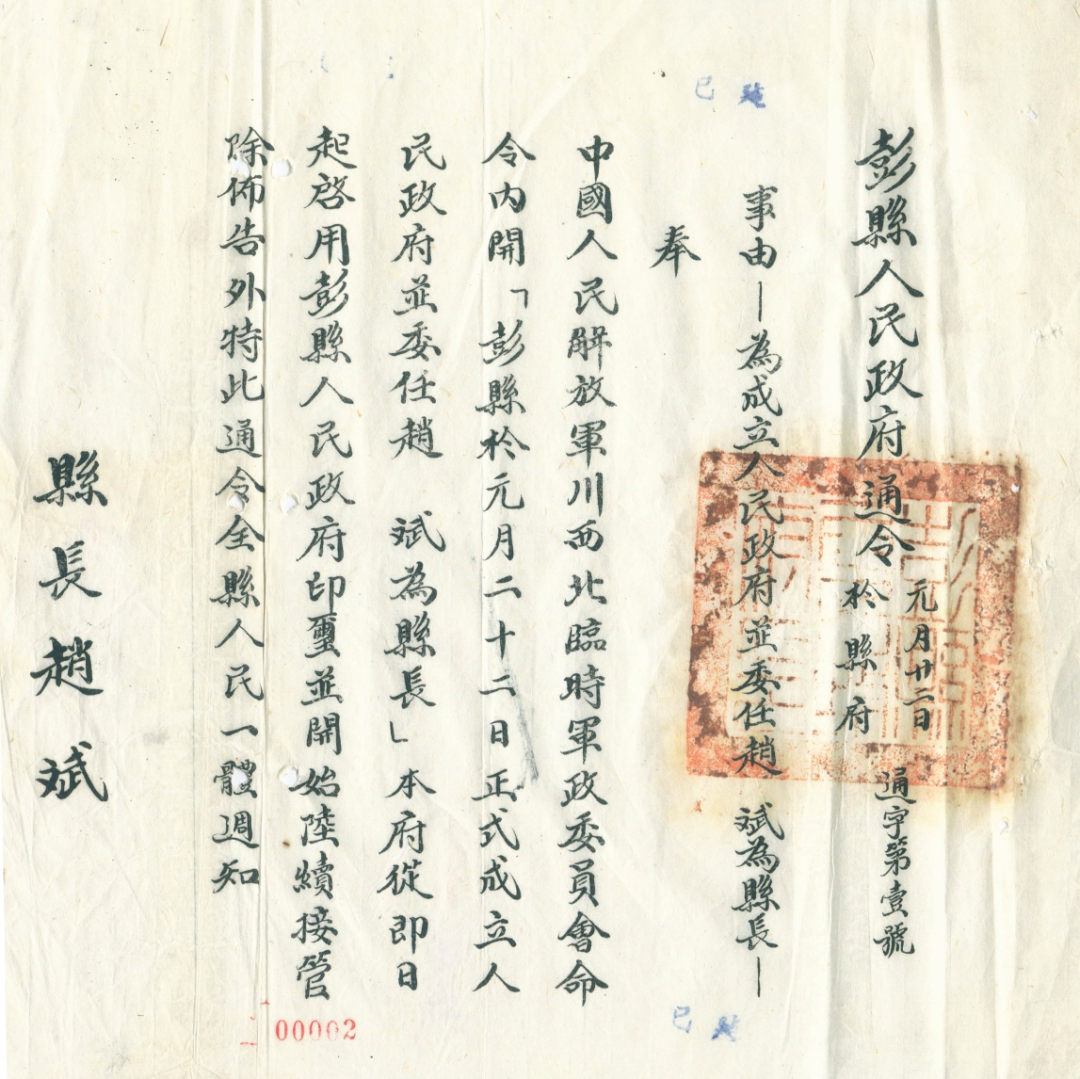 彭縣人民政府通令
元月廿二日
於縣府
通字第壹號
事由—為成立人民政府並委任趙 斌為縣長—
奉
中國人民解放軍川西北臨時軍政委員會命
令內開「彭縣於元月二十二日正式成立人
民政府並委任趙 斌為縣長」本府從即日
起啓用彭縣人民政府印璽並開始陸續接管
除佈告外特此通令全縣人民一體週知
縣長趙斌
00002